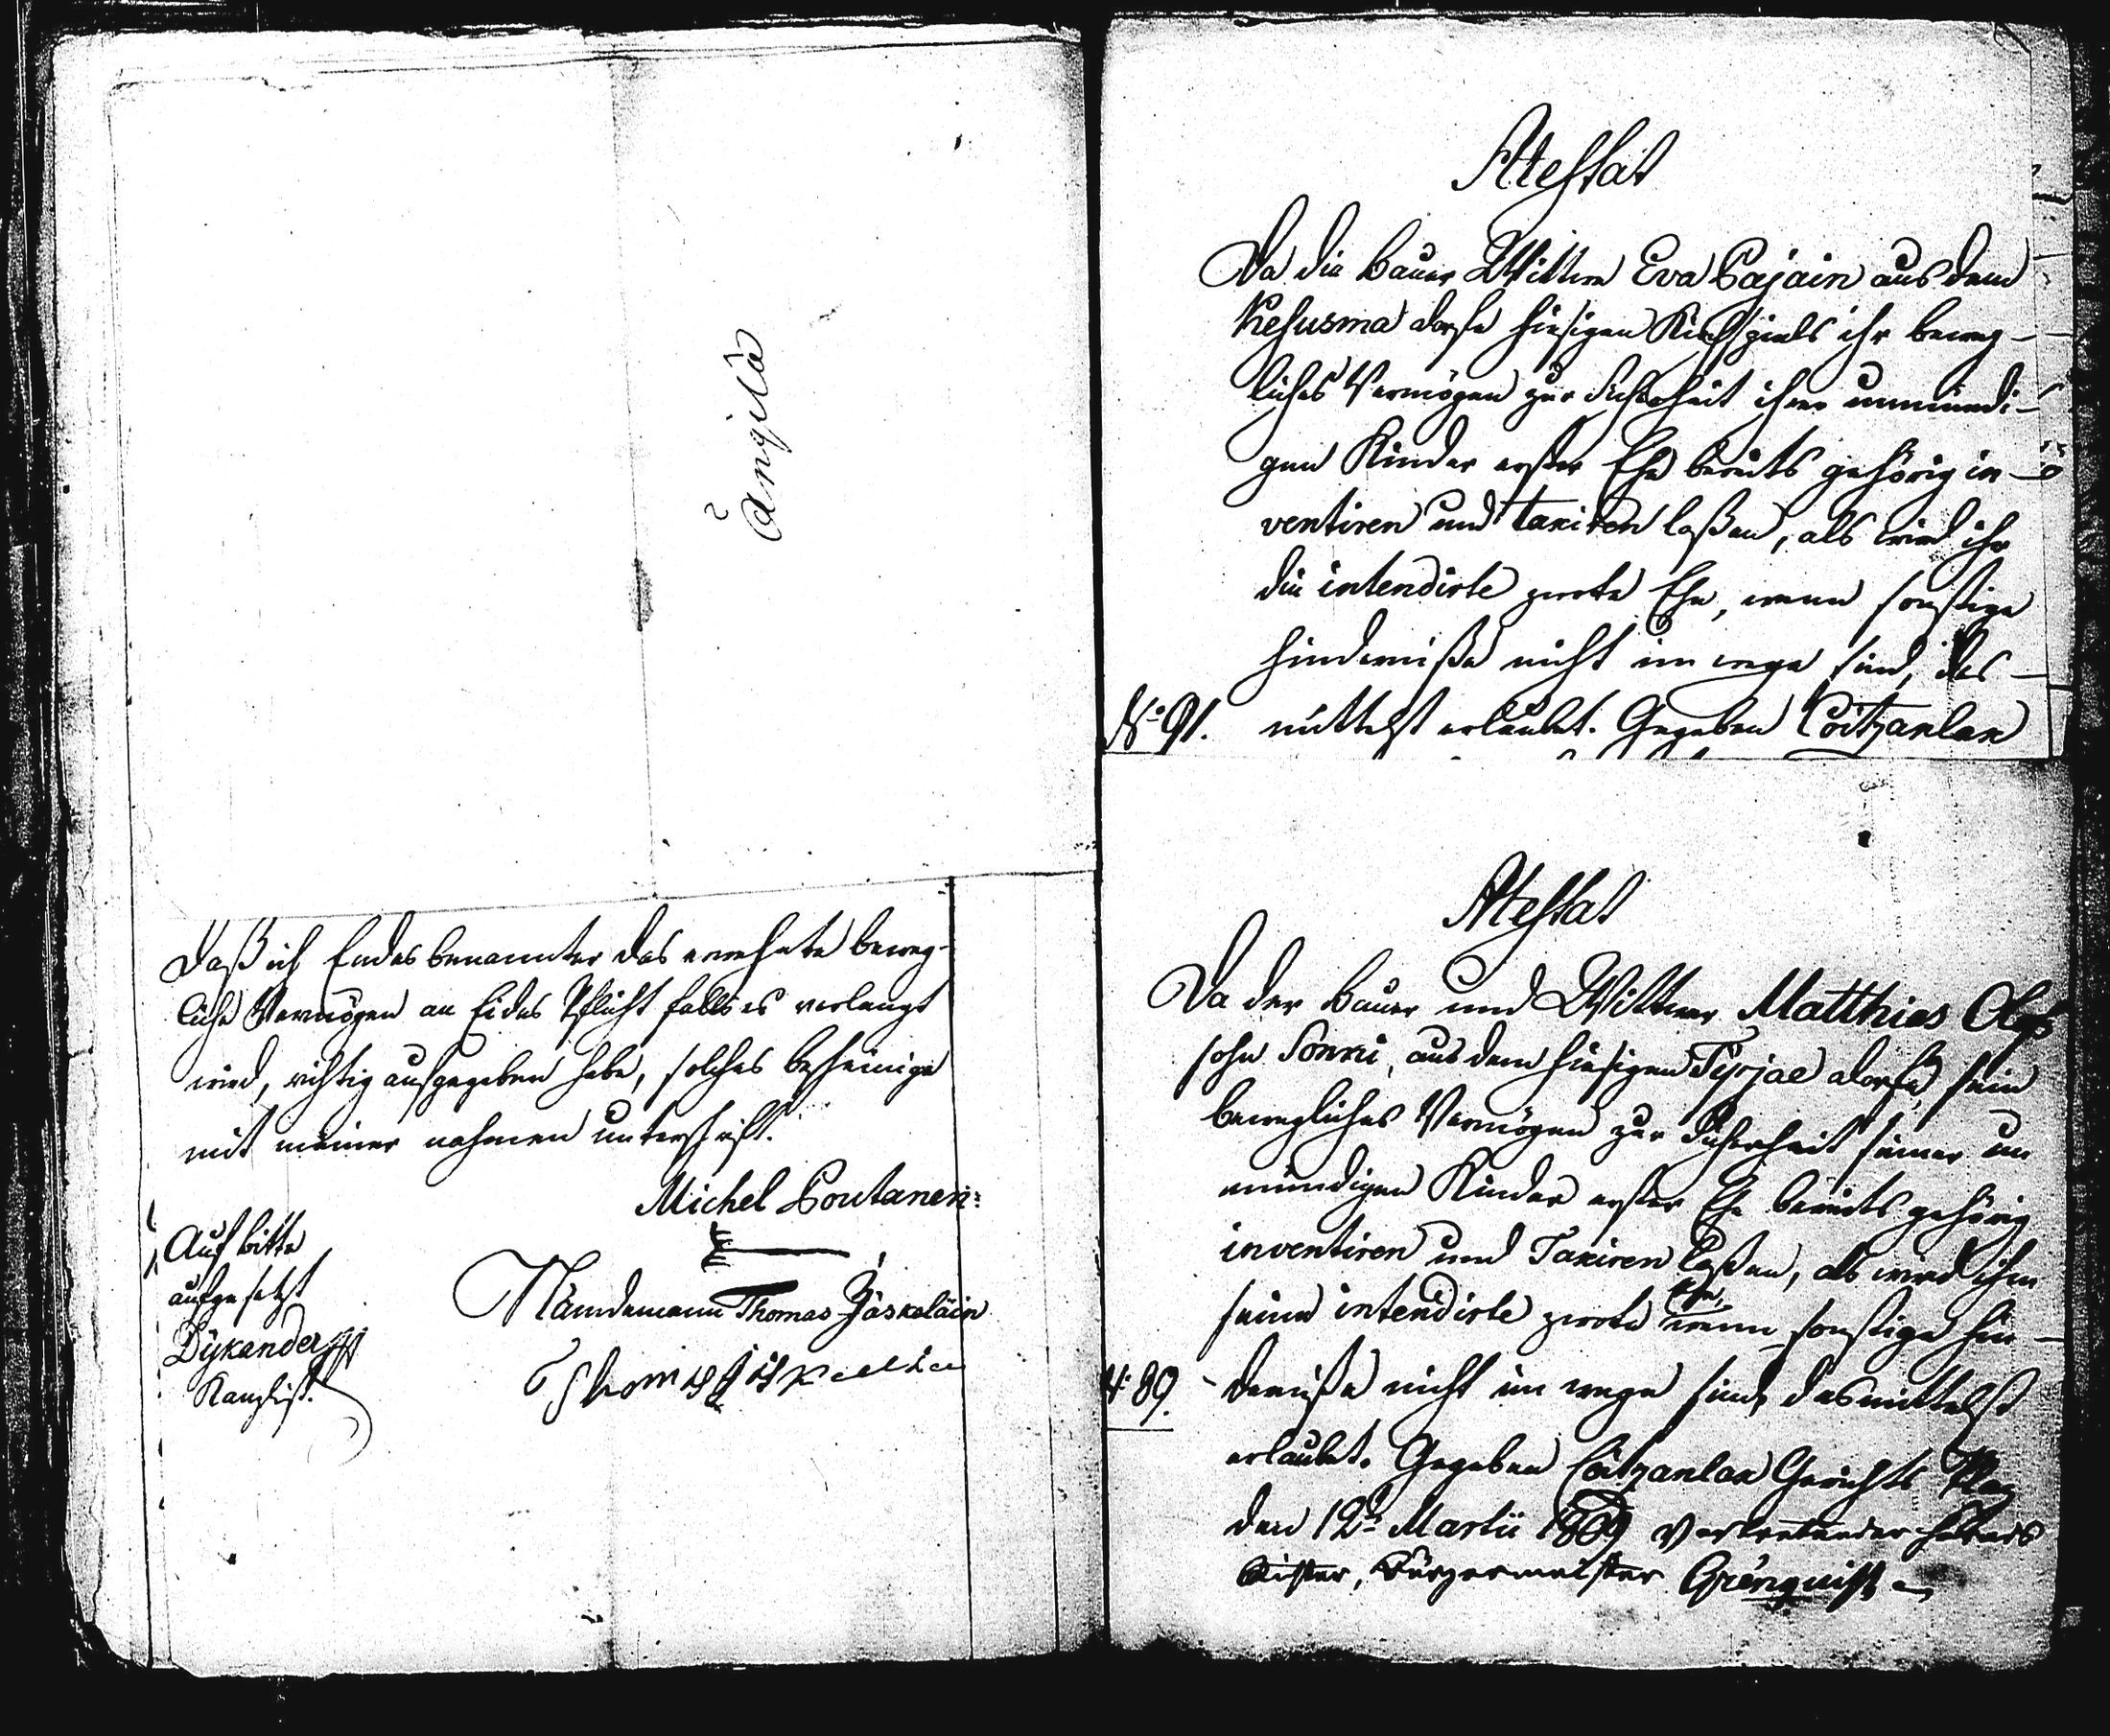 Ängilä
Daß ich Endes benannter das erwehnte beweg-
liche Vermögen an Eides Pflicht falls es verlangt
wird, richtig aufgegeben habe, solches bescheinige
mit meiner nahmen unterschrift.
Michel Poutanen:
Auf bitte
aufgesetzt
Dÿkander
Kanzlist.
Nämdemann Thomas Jäskeläin
Attestat
Da die Bauer Wittwe Eva Pajain aus dem
Kesusma dorfe hiesigen Kirchspiels ihr beweg-
liches Vermögen zur Sicherheit ihrer unmündi-
gen Kinder erster Ehe bereits gehörig in-
ventiren und taxiren laßen, als wird ihr
die intendirte zwote Ehe, wenn sonstige
hinderniße nicht im wege sind, des-
No 91. mittelst erlaubet. Gegeben Coitzanlax
Attestat
Da der Bauer und Wittwer Matthias Olofs
sohn Sonni, aus dem hiesigen Tyrjae dorfe, sein
bewegliches Vermögen zur Sicherheit seiner un
mündigen Kinder erster Ehe bereits gehörig
inventiren und Taxiren laßen, als wird ihm
seine intendirte zwote Ehe, wenn sonstige hin-
N: 89. derniße nicht im wege sind, desmittelst
erlaubet. Gegeben Coitzanlax Gerichts Plaz
den 12t Martii 1809 Vertretender Härads
Richter, Bürgermeister Grénquist